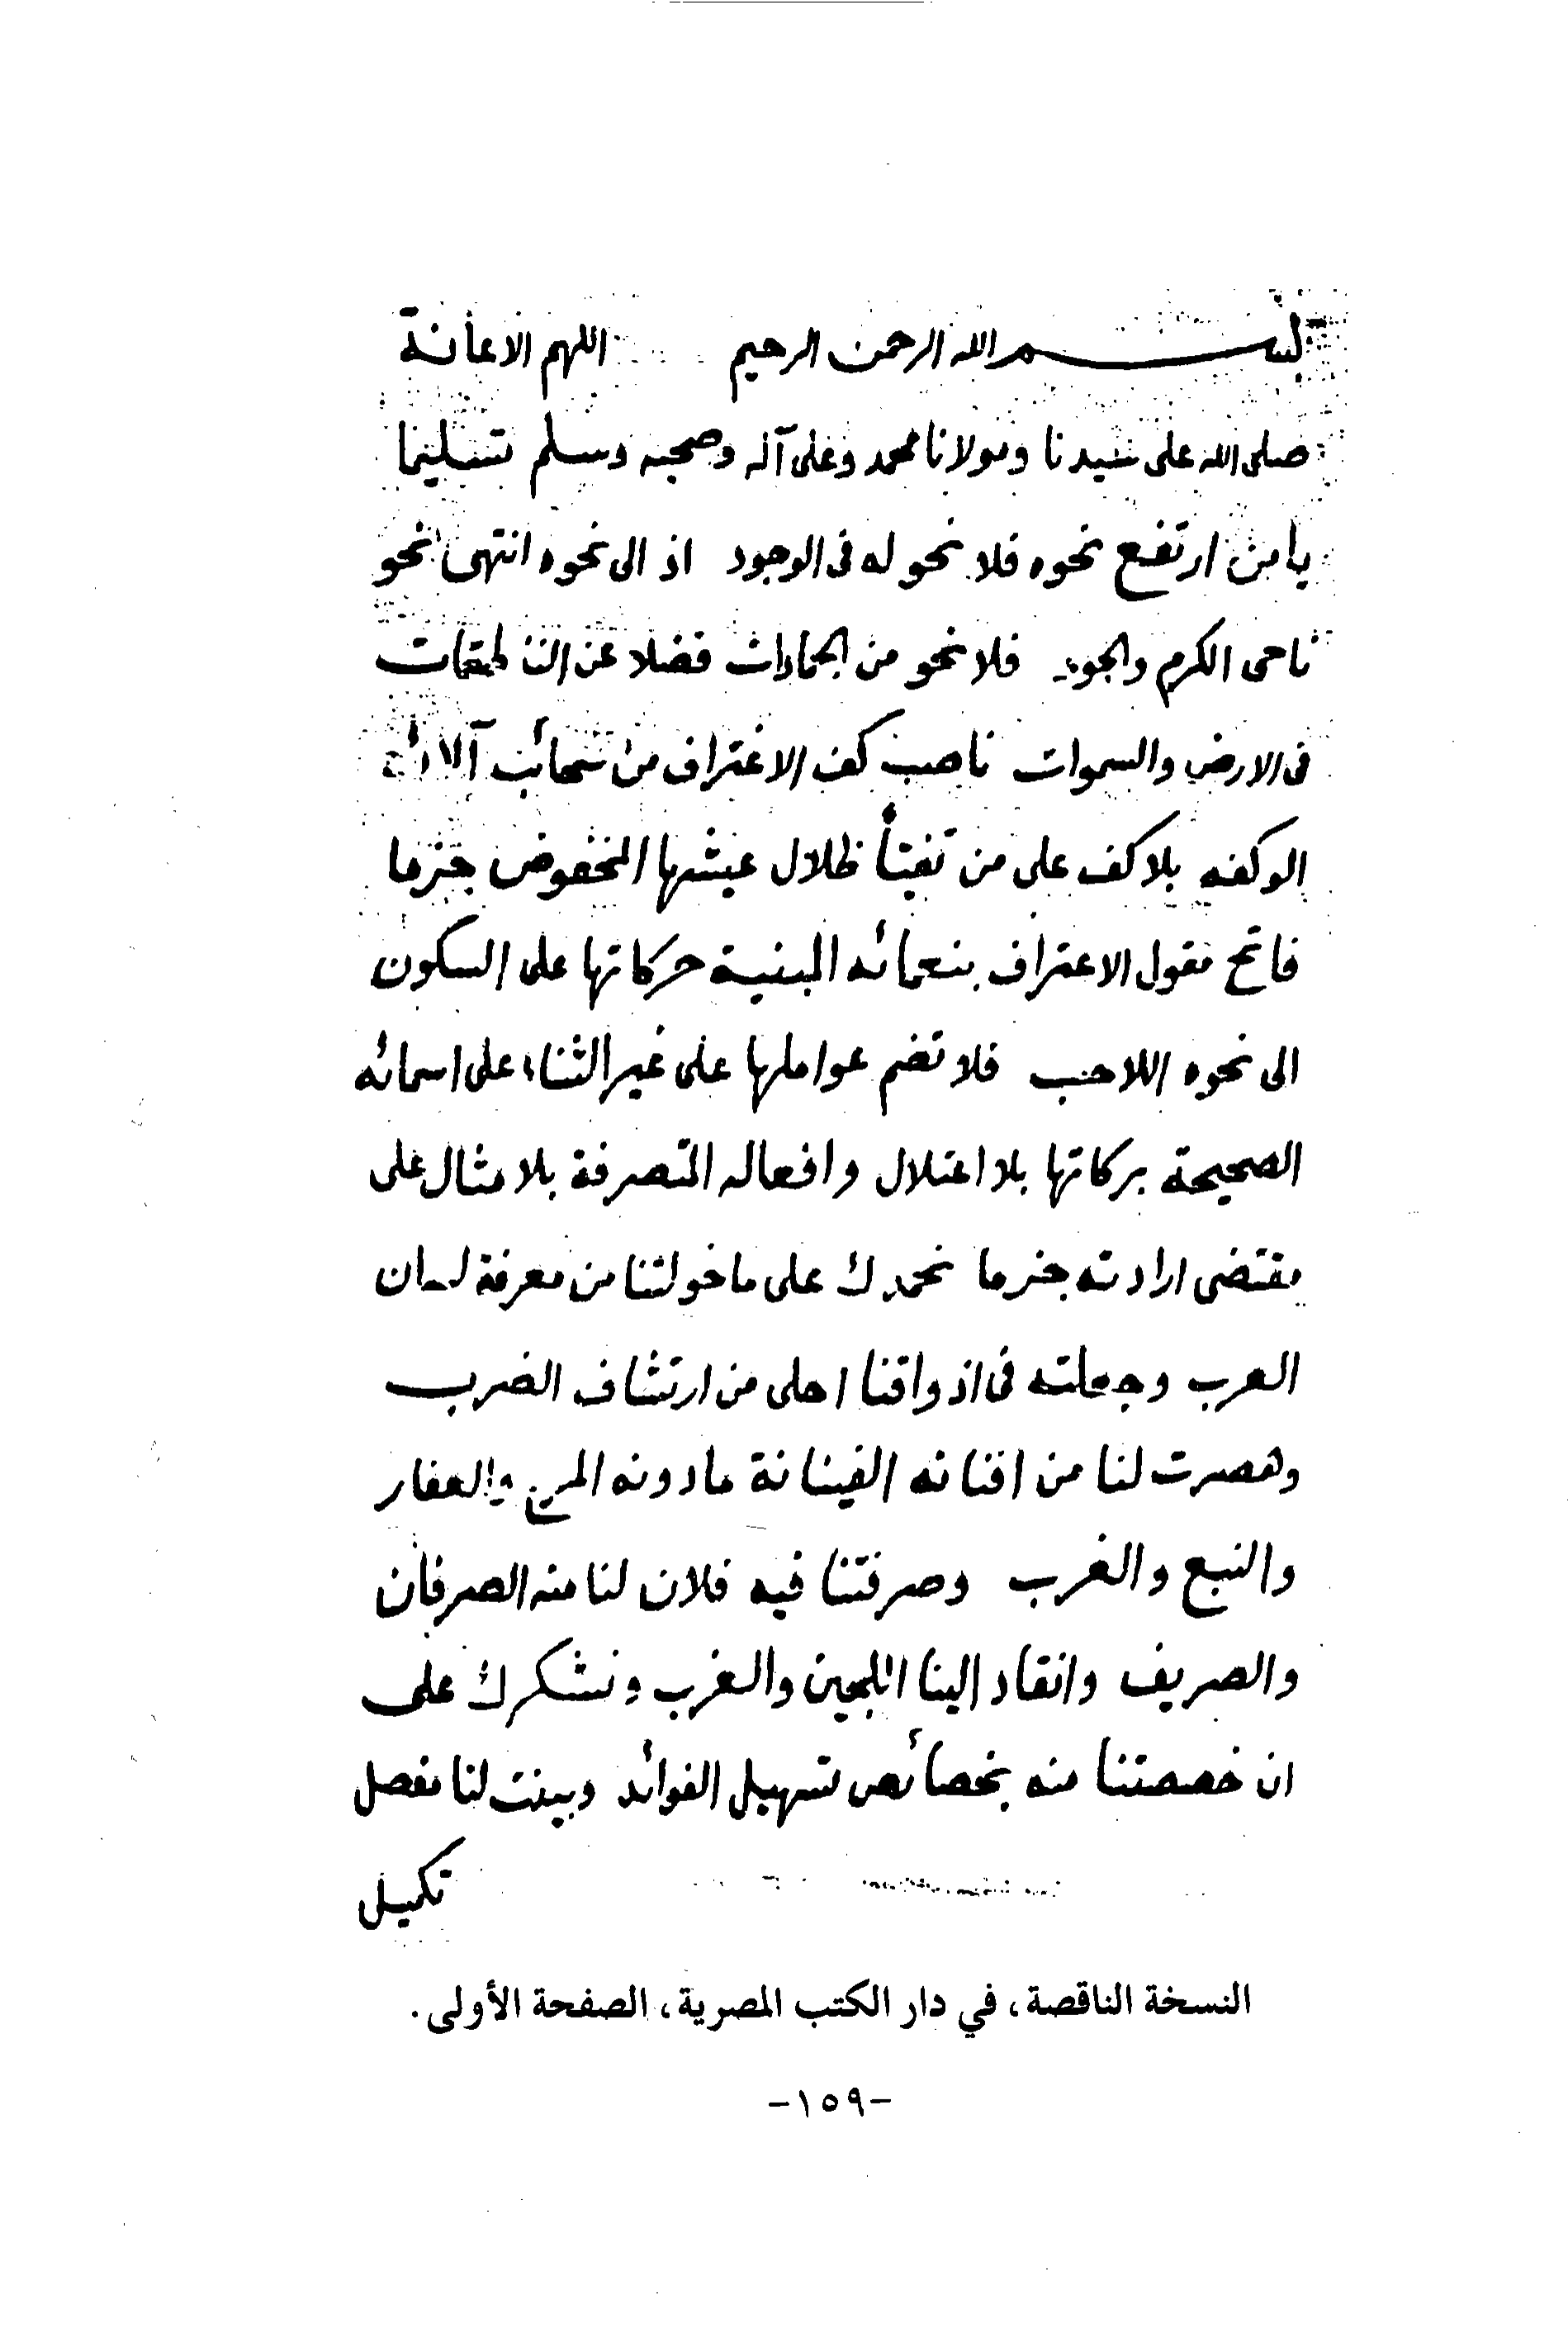 بسم الله الرحمن الرحيم اللهم الاعانة
صلى الله على سيدنا ومولانا محمد وعلى آله وصحبه وسلم تسليما
يا من ارتفع نحوه فلا نحو له فى الوجود اذ الى نحوه انتهى نحو
ناحى الكرم والجود فلا نحو من الجمادات فضلا عن الناطقات
فى الارض والسموات ناصب كف الاغتراف من سحائب آلائه
الوكفه بلا كف على من تفيئأ ظلال عيشها المخفوض جزما
فاتح مقول الاعتراف بنعمائه المبنية حركاتها على السكون
الى نحوه اللاحب فلا تضم عواملها على غير الثناء على اسمائه
الصحيحة بركاتها بلا اعتلال وافعاله المتصرفة بلا مثال على
مقتضى ارادته جزما نحمدك على ما خولتنا من معرفة لسان
العرب وجعلته فى اذواقنا احلى من ارتشاف الضرب
وهصرت لنا من افنانه الفينانة ما دونه المرخ والعفار
والنبع والغرب وصرفتنا فيه فلان لنا منه الصرفان
والصريف وانقاد الينا اللجين والغرب ونشكرك على
ان خصصتنا منه بخصائص تسهيل الفوائد وبينت لنا مفصل
تكميل
النسخة الناقصة، في دار الكتب المصرية، الصفحة الأولى.
-١٥٩-